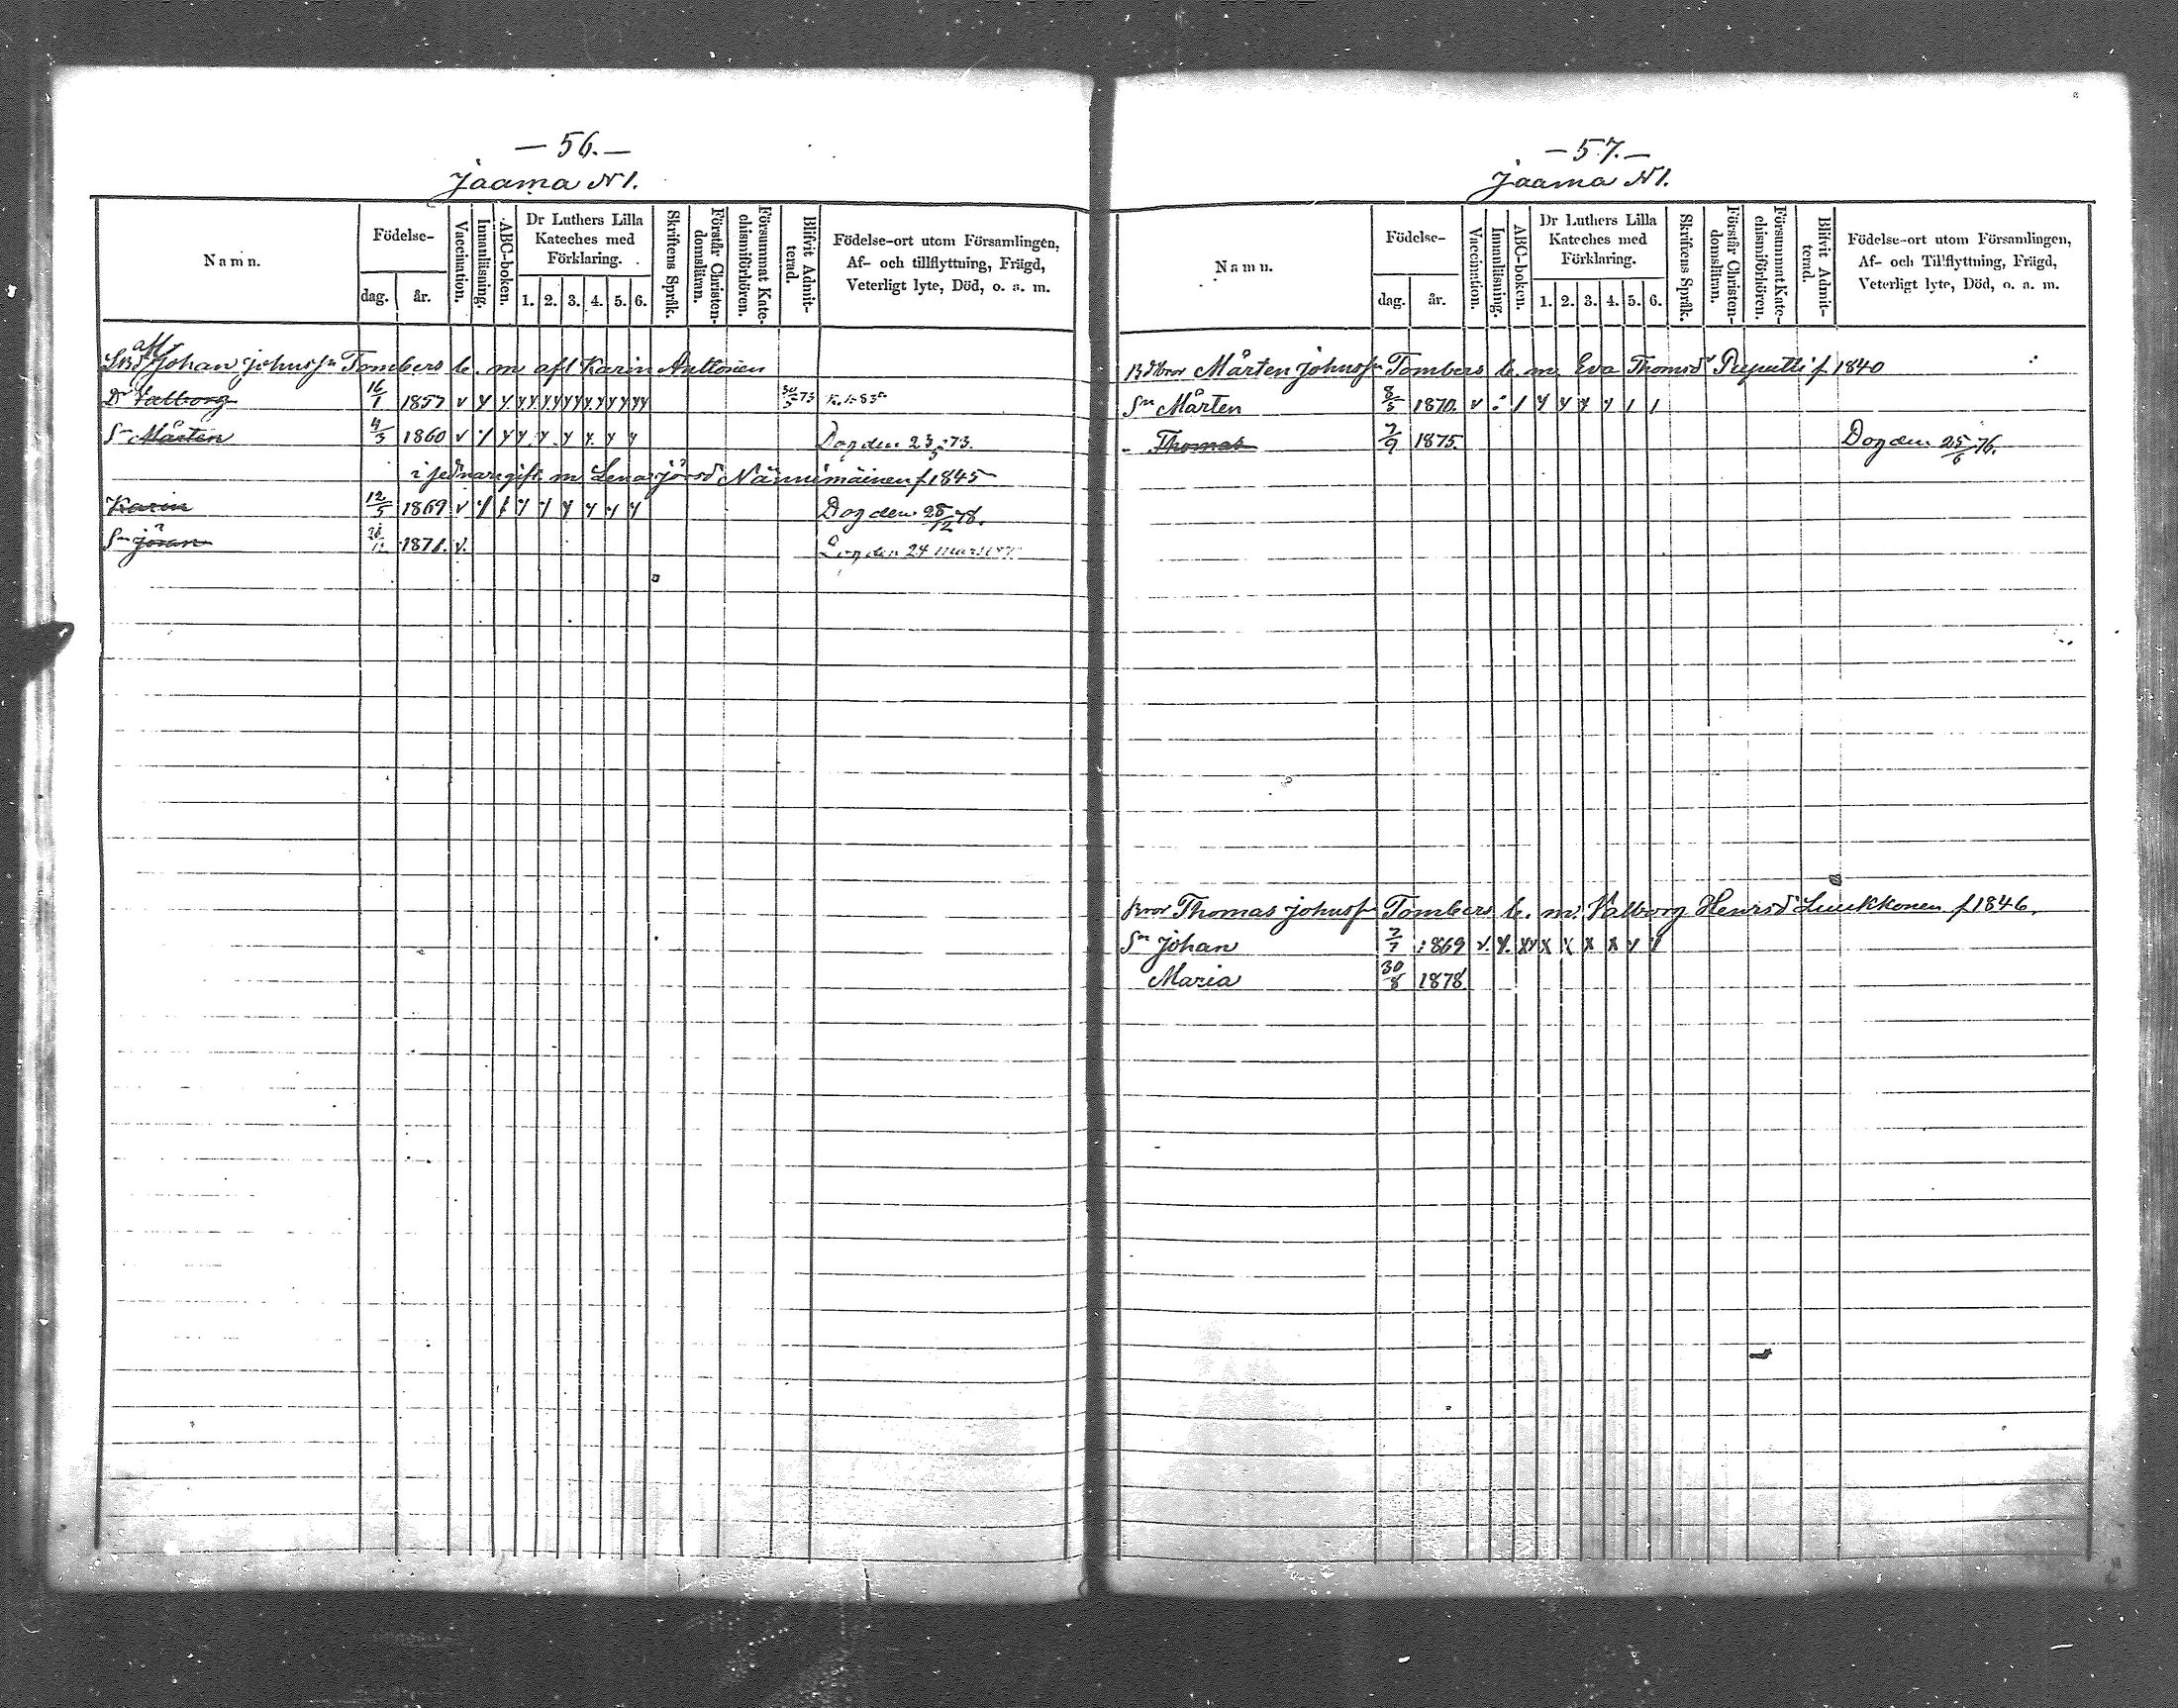 — 56. —
Jaama N 1.
Namn. Födelse- dag. år. Vaccination. Innanläsning. ABC-boken. Dr Luthers Lilla Kateches med Förklaring. 1. 2. 3. 4. 5. 6. Skriftens Språk. Förstår Christendomsläran. Försummat Katechismiförhören. Blifvit Admitterad. Födelse-ort utom Församlingen, Af- och tillflyttning, Frägd, Veterligt lyte, Död, o. s. m.
afl
Johan Johnss:n Tombers b. m afl Karin Anttonen
Dr Valborg 16/1 1857 30/5 73
Sn Mårten 4/3 1860 Dog den 23/5 73.
gift m Lena Nännimäinen f 1845
Karin 12/5 1869 Dog den 28/12 78.
Sn Jöran 1871. Dog den 24 mars
— 57. —
Jaama N 1.
Namn. Födelse- dag. år. Vaccination. Innanläsning. ABC-boken. Dr Luthers Lilla Kateches med Förklaring. 1. 2. 3. 4. 5. 6. Skriftens Språk. Förstår Christendomsläran. Försummat Katechismiförhören. Blifvit Admitterad. Födelse-ort utom Församlingen, Af- och Tillflyttning, Frägd, Veterligt lyte, Död, o. s. m.
Mårten Johnss:n Tombers b. m. Eva ThomsdReputti f 1840
Sn Mårten 8/5 1870.
- Thomas 7/9 1875. Dog den 25/6 76.
Bror Thomas Johnss:n Tombers b. m. Valborg Henrsd Luukkonen f 1846.
Sn Johan 7/7 1869
Maria 30/8 1878